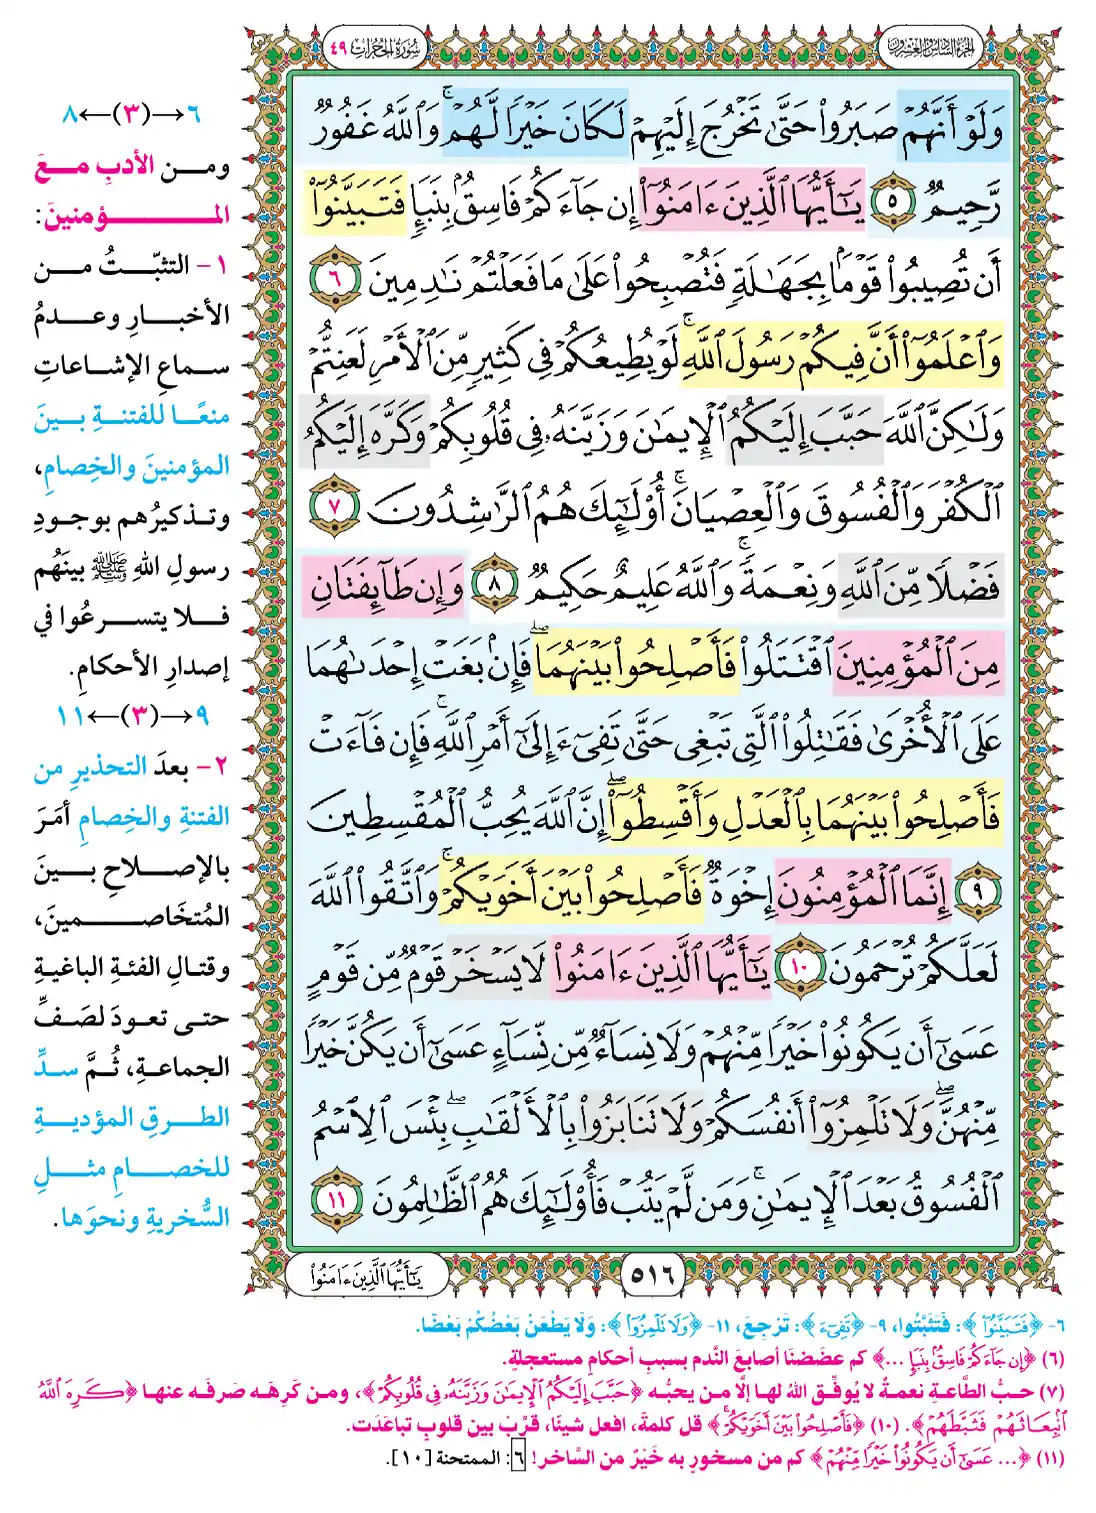 الجزء السادس والعشرون
سورة الحجرات ٤٩
وَلَوْ أَنَّهُمْ صَبَرُوا۟ حَتَّىٰ تَخْرُجَ إِلَيْهِمْ لَكَانَ خَيْرًا لَّهُمْ ۚ وَٱللَّهُ غَفُورٌ
رَّحِيمٌ ٥ يَـٰٓأَيُّهَا ٱلَّذِينَ ءَامَنُوٓا۟ إِن جَآءَكُمْ فَاسِقٌۢ بِنَبَإٍ فَتَبَيَّنُوٓا۟
أَن تُصِيبُوا۟ قَوْمًۢا بِجَهَـٰلَةٍ فَتُصْبِحُوا۟ عَلَىٰ مَا فَعَلْتُمْ نَـٰدِمِينَ ٦
وَٱعْلَمُوٓا۟ أَنَّ فِيكُمْ رَسُولَ ٱللَّهِ ۚ لَوْ يُطِيعُكُمْ فِى كَثِيرٍ مِّنَ ٱلْأَمْرِ لَعَنِتُّمْ
وَلَـٰكِنَّ ٱللَّهَ حَبَّبَ إِلَيْكُمُ ٱلْإِيمَـٰنَ وَزَيَّنَهُۥ فِى قُلُوبِكُمْ وَكَرَّهَ إِلَيْكُمُ
ٱلْكُفْرَ وَٱلْفُسُوقَ وَٱلْعِصْيَانَ ۚ أُو۟لَـٰٓئِكَ هُمُ ٱلرَّٰشِدُونَ ٧
فَضْلًا مِّنَ ٱللَّهِ وَنِعْمَةً ۚ وَٱللَّهُ عَلِيمٌ حَكِيمٌ ٨ وَإِن طَآئِفَتَانِ
مِنَ ٱلْمُؤْمِنِينَ ٱقْتَتَلُوا۟ فَأَصْلِحُوا۟ بَيْنَهُمَا ۖ فَإِنۢ بَغَتْ إِحْدَىٰهُمَا
عَلَى ٱلْأُخْرَىٰ فَقَـٰتِلُوا۟ ٱلَّتِى تَبْغِى حَتَّىٰ تَفِىٓءَ إِلَىٰٓ أَمْرِ ٱللَّهِ ۚ فَإِن فَآءَتْ
فَأَصْلِحُوا۟ بَيْنَهُمَا بِٱلْعَدْلِ وَأَقْسِطُوٓا۟ ۖ إِنَّ ٱللَّهَ يُحِبُّ ٱلْمُقْسِطِينَ
٩ إِنَّمَا ٱلْمُؤْمِنُونَ إِخْوَةٌ فَأَصْلِحُوا۟ بَيْنَ أَخَوَيْكُمْ ۚ وَٱتَّقُوا۟ ٱللَّهَ
لَعَلَّكُمْ تُرْحَمُونَ ١٠ يَـٰٓأَيُّهَا ٱلَّذِينَ ءَامَنُوا۟ لَا يَسْخَرْ قَوْمٌ مِّن قَوْمٍ
عَسَىٰٓ أَن يَكُونُوا۟ خَيْرًا مِّنْهُمْ وَلَا نِسَآءٌ مِّن نِّسَآءٍ عَسَىٰٓ أَن يَكُنَّ خَيْرًا
مِّنْهُنَّ ۖ وَلَا تَلْمِزُوٓا۟ أَنفُسَكُمْ وَلَا تَنَابَزُوا۟ بِٱلْأَلْقَـٰبِ ۖ بِئْسَ ٱلِٱسْمُ
ٱلْفُسُوقُ بَعْدَ ٱلْإِيمَـٰنِ ۚ وَمَن لَّمْ يَتُبْ فَأُو۟لَـٰٓئِكَ هُمُ ٱلظَّـٰلِمُونَ ١١
٥١٦
يَـٰٓأَيُّهَا ٱلَّذِينَ ءَامَنُوا۟
٦→(٣)←٨
ومـن الأدبِ مـعَ
المؤمنينَ:
١- التثبّتُ من
الأخبارِ وعدمُ
سماعِ الإشاعاتِ
منعًا للفتنةِ بينَ
المؤمنينَ والخِصامِ،
وتذكيرُهم بوجودِ
رسولِ اللهِ ﷺ بينَهُم
فلا يتسرعُوا في
إصدارِ الأحكامِ.
٩→(٣)←١١
٢- بعدَ التحذيرِ من
الفتنةِ والخِصامِ أمَرَ
بالإصلاحِ بينَ
المُتخَاصمينَ،
وقتالِ الفئةِ الباغيةِ
حتى تعودَ لصَفِّ
الجماعةِ، ثُمَّ سدِّ
الطرقِ المؤديةِ
للخصامِ مثلِ
السُّخريةِ ونحوَها.
٦- ﴿فَتَبَيَّنُوٓا۟﴾: فَتَثَبَّتُوا، ٩- ﴿تَفِىٓءَ﴾: تَرْجِعَ، ١١- ﴿وَلَا تَلْمِزُوٓا۟﴾: وَلَا يَطْعَنْ بَعْضُكُمْ بَعْضًا.
(٦) ﴿إِن جَآءَكُمْ فَاسِقٌۢ بِنَبَإٍ ...﴾ كم عضَضنَا أصابعَ النَّدم بسببِ أحكامٍ مستعجلةٍ.
(٧) حبُّ الطَّاعةِ نعمةٌ لا يُوفِّق اللهُ لها إلَّا من يحبُّه ﴿حَبَّبَ إِلَيْكُمُ ٱلْإِيمَـٰنَ وَزَيَّنَهُۥ فِى قُلُوبِكُمْ﴾، ومن كَرِهَه صَرفَه عنها ﴿كَرِهَ ٱللَّهُ
ٱنۢبِعَاثَهُمْ فَثَبَّطَهُمْ﴾. (١٠) ﴿فَأَصْلِحُوا۟ بَيْنَ أَخَوَيْكُمْ ۚ﴾ قل كلمةً، افعل شيئًا، قرِّبْ بين قلوبٍ تباعَدَت.
(١١) ﴿... عَسَىٰٓ أَن يَكُونُوا۟ خَيْرًا مِّنْهُمْ﴾ كم من مسخورٍ به خَيْرٌ من السَّاخر! ٦: الممتحنة [١٠].